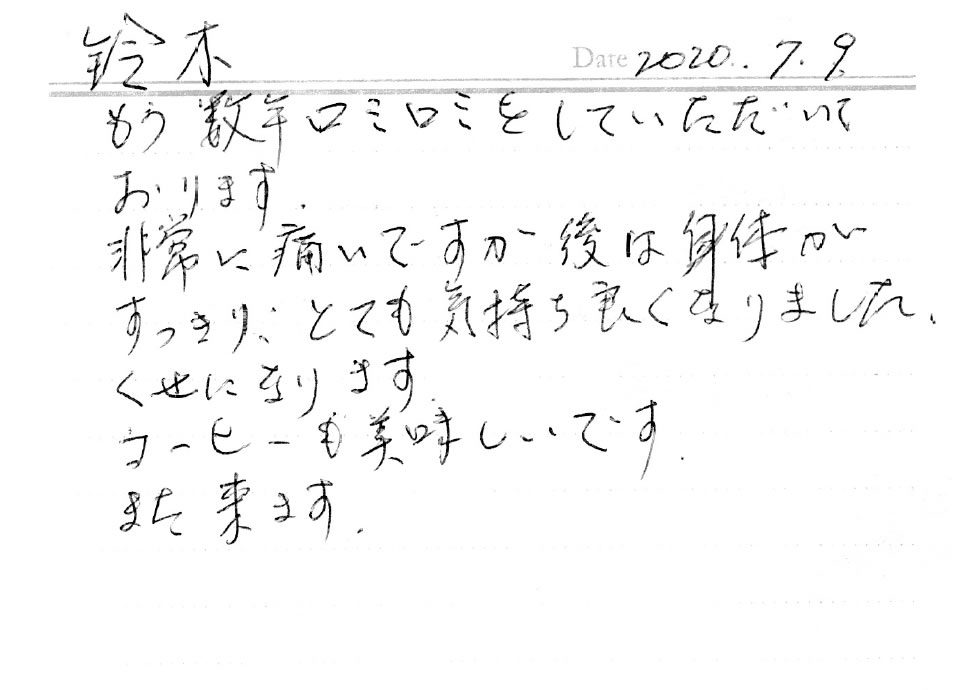 鈴木
Date 2020.7.9
もう数年ロミロミをしていただいて
おります.
非常に痛いですが後は身体が
すっきり、とても気持ち良くなりました.
くせになります.
コーヒーも美味しいです.
また来ます.